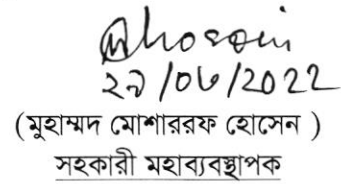 Mhosain
২৯/০৬/2022
(মুহাম্মদ মোশাররফ হোসেন )
সহকারী মহাব্যবস্থাপক